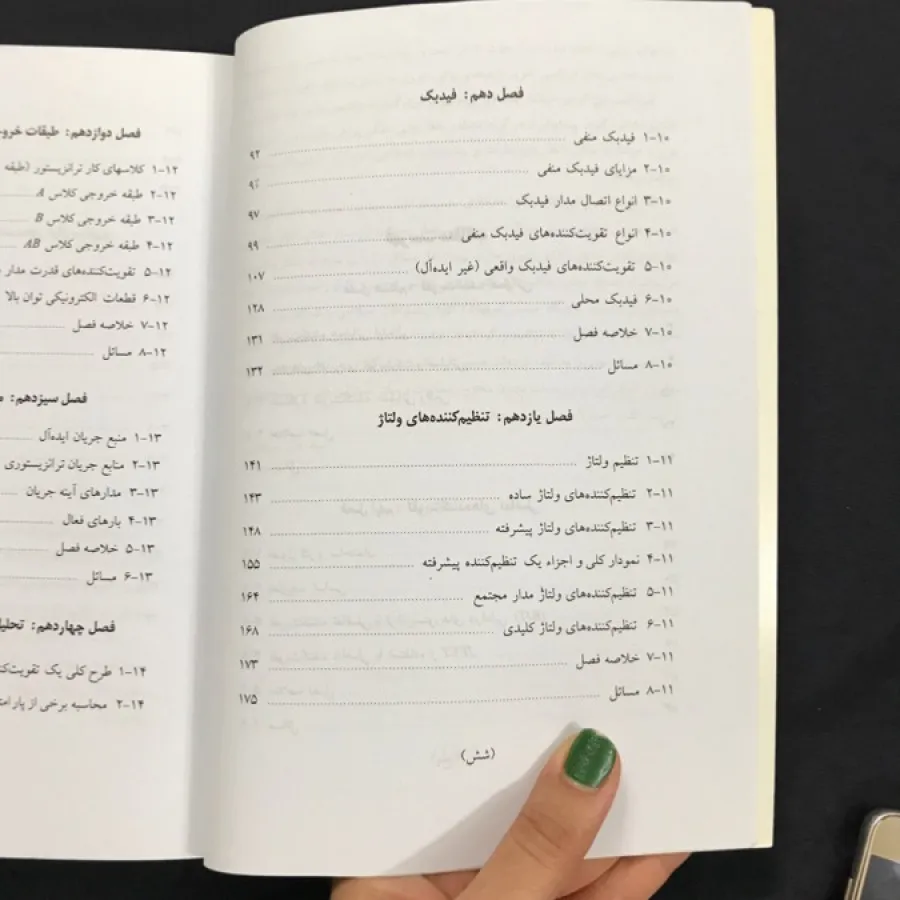 فصل دهم: فیدبک
۱۰-۱ فیدبک منفی ........ ۹۲
۱۰-۲ مزایای فیدبک منفی ........
۱۰-۳ انواع اتصال مدار فیدبک ........ ۹۷
۱۰-۴ انواع تقویت‌کننده‌های فیدبک منفی ........ ۹۹
۱۰-۵ تقویت‌کننده‌های فیدبک واقعی (غیر ایده‌آل) ........ ۱۰۷
۱۰-۶ فیدبک محلی ........ ۱۲۸
۱۰-۷ خلاصه فصل ........ ۱۳۱
۱۰-۸ مسائل ........ ۱۳۲
فصل یازدهم: تنظیم‌کننده‌های ولتاژ
۱۱-۱ تنظیم ولتاژ ........ ۱۴۱
۱۱-۲ تنظیم‌کننده‌های ولتاژ ساده ........ ۱۴۳
۱۱-۳ تنظیم‌کننده‌های ولتاژ پیشرفته ........ ۱۴۸
۱۱-۴ نمودار کلی و اجزاء یک تنظیم‌کننده پیشرفته ........ ۱۵۵
۱۱-۵ تنظیم‌کننده‌های ولتاژ مدار مجتمع ........ ۱۶۴
۱۱-۶ تنظیم‌کننده‌های ولتاژ کلیدی ........ ۱۶۸
۱۱-۷ خلاصه فصل ........ ۱۷۳
۱۱-۸ مسائل ........ ۱۷۵
(شش)
فصل دوازدهم: طبقات
۱۲-۱ کلاسهای کار ترانزیستور (طبقه
۱۲-۲ طبقه خروجی کلاس A ........
۱۲-۳ طبقه خروجی کلاس B ........
۱۲-۴ طبقه خروجی کلاس AB ........
۱۲-۵ تقویت‌کننده‌های قدرت مدار
۱۲-۶ قطعات الکترونیکی توان بالا
۱۲-۷ خلاصه فصل ........
۱۲-۸ مسائل ........
فصل سیزدهم:
۱۳-۱ منبع جریان ایده‌آل ........
۱۳-۲ منابع جریان ترانزیستوری
۱۳-۳ مدارهای آینه جریان ........
۱۳-۴ بارهای فعال ........
۱۳-۵ خلاصه فصل ........
۱۳-۶ مسائل ........
فصل چهاردهم:
۱۴-۱ طرح کلی یک
۱۴-۲ محاسبه برخی از